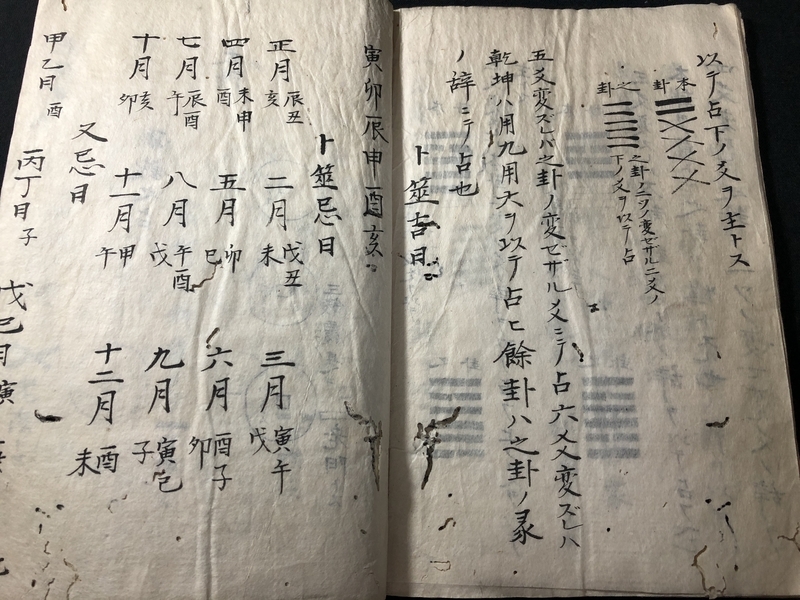 以テ占下ノ爻ヲ主トス
本卦
之卦
之卦ノ二ツノ変ゼザル二爻ノ
下ノ爻ヲ以テ占
五爻変ズレバ之卦ノ変ゼザル爻ニテ占六爻変ズレハ
乾坤ハ用九用六ヲ以テ占ヒ餘卦ハ之卦ノ彖
ノ辞ニテ占也
卜筮吉日
寅卯辰申酉亥
卜筮忌日
正月 丑辰亥
二月 戊丑未
三月 寅午戊
四月 未申酉
五月 卯巳
六月 酉子卯
七月 辰酉午
八月 午酉戊
九月 寅子
十月 亥卯
十一月 甲午
十二月 酉未
又忌日
甲乙日 酉
丙丁日 子
戊己日 寅